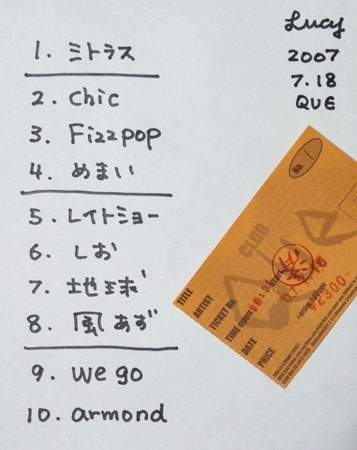 Lucy
2007
7.18
QUE
1. ミトラス
2. chic
3. Fizzpop
4. めまい
5. レイトショー
6. しお
7. 地球
8. 風あざ
9. we go
10. armond
No. 1
CLUB
TITLE
ARTIST
TICKET No.
TIME open
DATE
PRICE ¥2300-